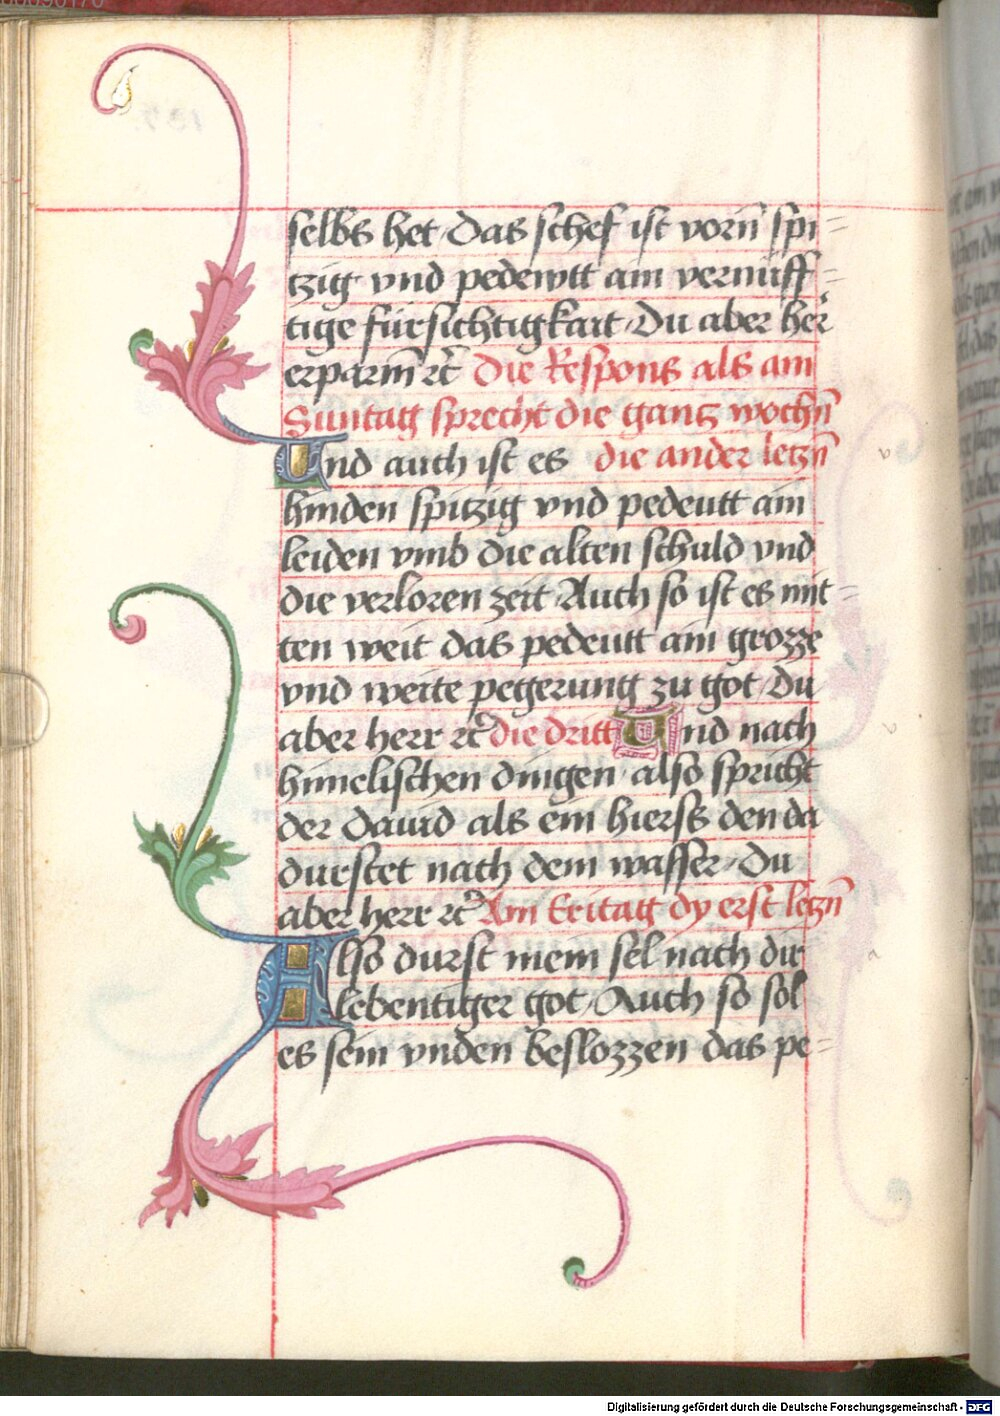 selbs het Das schef ist vorn̄ spi=
tzig vnd pedewtt ain vernuff=
tige fürsichtigkait Du aber her
erparm̄ ꝛc̄ Die Respons als am
Suntag sprecht die gantz wochn̄
Und auch ist es die ander letzn̄
hinden spitzig vnd pedeutt ain
leiden vmb die alten schuld vnd
die verloren zeit Auch so ist es mit=
ten weit das pedeutt ain grozze
vnd weite pegerung zu got Du
aber herr ꝛc̄ die dritt Und nach
himelischen dingen also spricht
der Dauid als ein hierss den da
durstet nach dem wasser Du
aber herr ꝛc̄ Am Eritag dy erst letzn̄
Also durst mein sel nach dir
lebentiger got Auch so sol
es sein vnden beslozzen das pe=
Digitalisierung gefördert durch die Deutsche Forschungsgemeinschaft - DFG